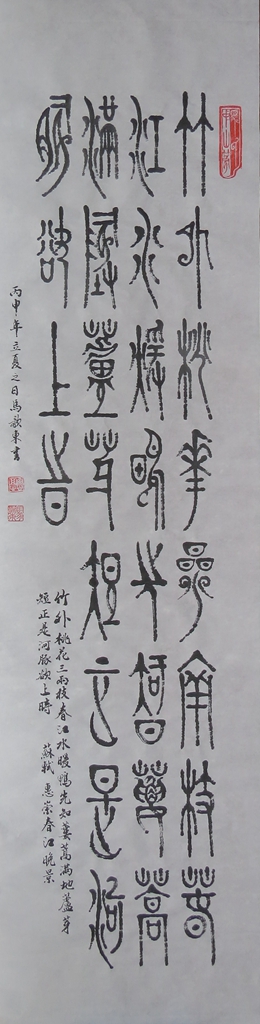 竹外桃華參兩枝春
江水暖鴨先知蔞蒿
滿地蘆芽短正是河
豚欲上時
竹外桃花三兩枝春江水暖鴨先知蔞蒿滿地蘆芽
短正是河豚欲上時 蘇軾 惠崇春江晚景
丙申年立夏之日馬東書